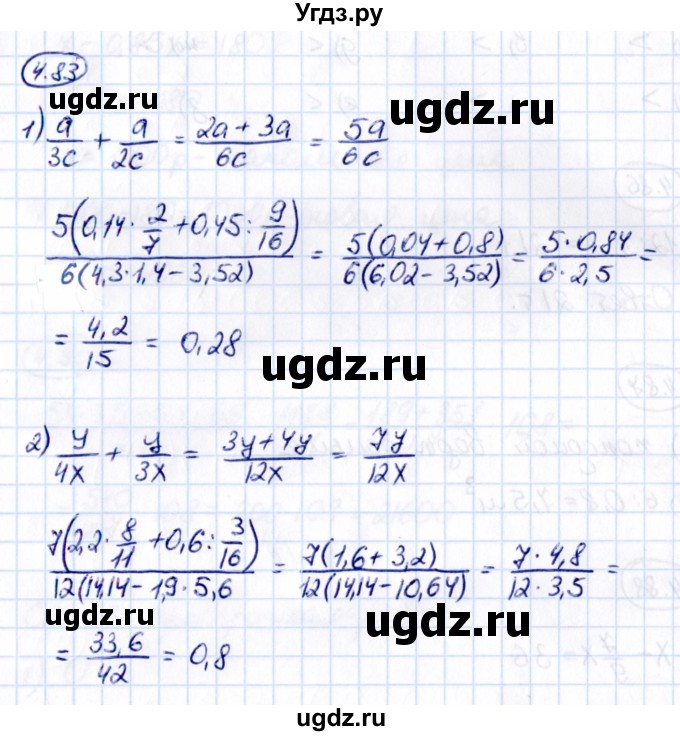 Угдз.ру
4.83
ugdz.ru ugdz.ru
1) a/3c + a/2c = (2a + 3a)/6c = 5a/6c
5(0,14 · 2/7 + 0,45 : 9/16)/6(4,3·1,4 - 3,52) = 5(0,04 + 0,8)/6(6,02 - 3,52) = 5·0,84/6·2,5 =
= 4,2/15 = 0,28
ugdz.ru ugdz.ru
2) y/4x + y/3x = (3y + 4y)/12x = 7y/12x
7(2,2 · 8/11 + 0,6 : 3/16)/12(14,14 - 1,9·5,6 = 7(1,6 + 3,2)/12(14,14 - 10,64) = 7·4,8/12·3,5 =
ugdz.ru ugdz.ru
= 33,6/42 = 0,8
ugdz.ru